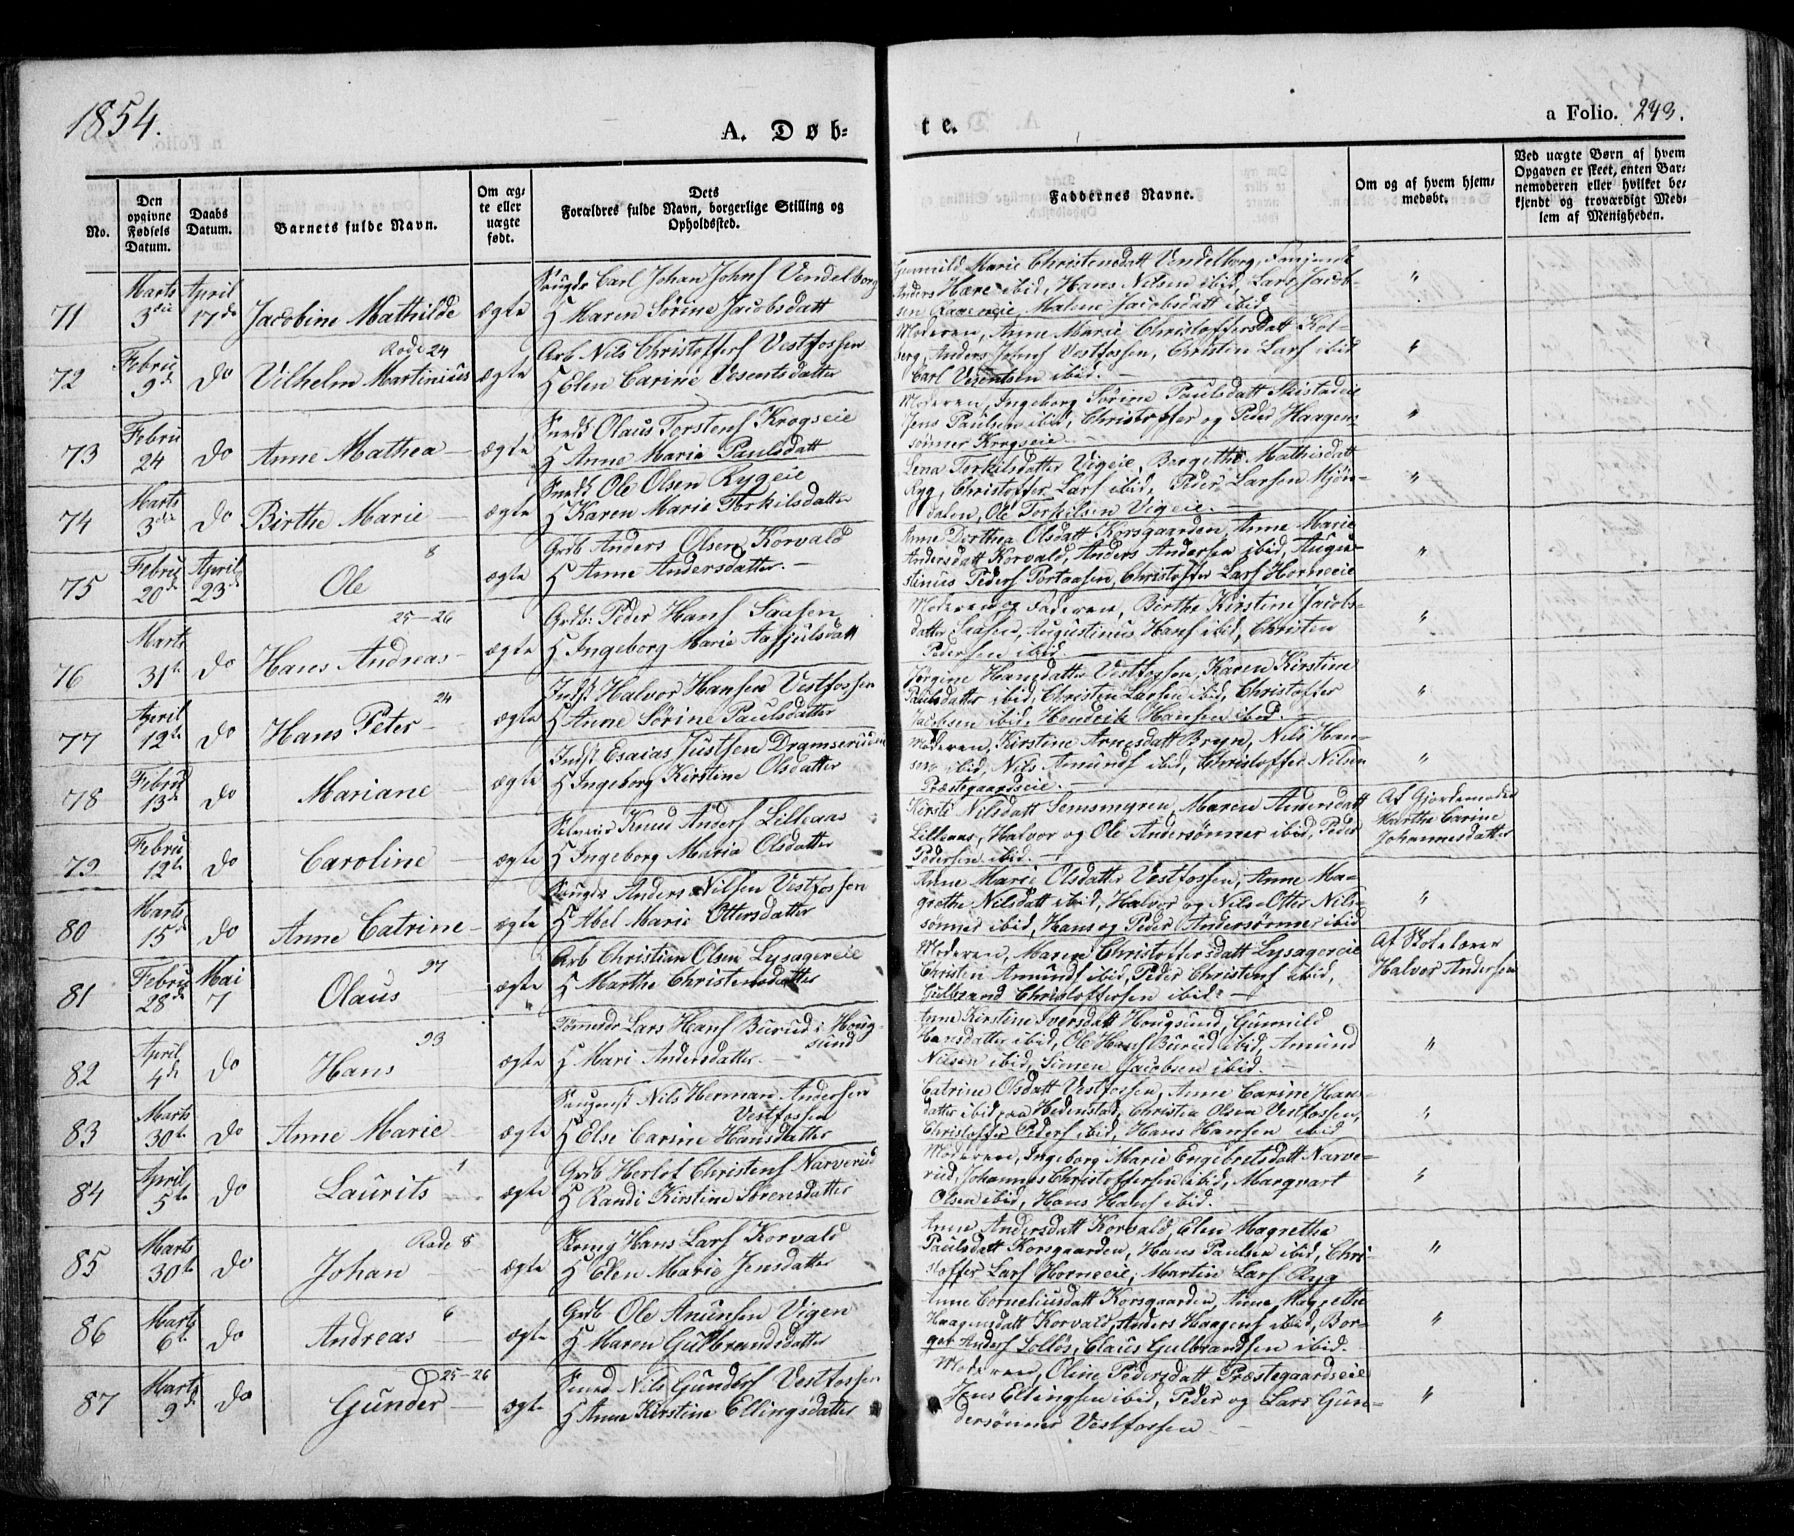 1854.
A. Døb-
te.
a Folio. 243.
No.
Den
opgivne
Fødsels
Datum.
Daabs
Datum.
Barnets fulde Navn.
Om æg-
te eller
uægte
født.
Dets
Forældres fulde Navn, borgerlige Stilling og
Opholdssted.
Faddernes Navne.
Om og af hvem hjem-
medøbt.
Ved uægte Børn af hvem
Opgaven er skeet, enten Bar-
nemoderen eller hvilket be-
kjendt og troværdigt Med-
lem af Menigheden.
71
Marts
3die
April
17de
Jacobine Mathilde
ægte
Carl Johan Johns Vendelborg
H Maren Sørine Jacobsdatt
Gunnild Marie Christensdatt Vendelborg,
Anders Hære ibid, Hans Nilsen ibid, Lars Jacob-
sen Malene Jacobsdatt ibid
"
72
Febru
9d
Do
Rode 24
Vilhelm Martinius
ægte
Arb Nils Christoffers Vestfossen
H Elen Carine Vesentsdatter
Moderen, Anne Marie Christoffersdatt Kol-
berg, Anders Johns Vestfossen, Christen Lars ibid
Carl Vesentsen ibid.
"
73
Febru
24
Do
Anne Mathea
ægte
Olaus Torstens Krogseie
H Anne Maria Paulsdatt
Moderen, Ingeborg Sørine Paulsdatt Skistadeie
Jens Paulsen ibid, Christoffer og Peder Haagen-
sønner Krogseie.
"
74
Marts
3die
Do
Birthe Marie
ægte
Ole Olsen Rygeie
H Karen Marie Torkilsdatter
Lena Torkilsdatter Vigeie, Borgethe Mathisdatt
Ryg, Christoffer Lars ibid, Peder Larsen Mjøn-
dalen, Ole Torkilsen Vigeie.
"
75
Febru
20d
April
23d
8
Ole
ægte
Grdb Anders Olsen Korvald
H Anne Andersdatter.
Anne Dorthea Olsdatt Korsgaarden, Anne Marie
Andersdatt Korvald, Anders Andersen ibid, Augu-
stinius Peders Portaasen, Christoffer Lars Horneeie
"
76
Marts
31te
Do
25-26
Hans Andreas
ægte
Grdb: Peder Hans Saasen
H Ingeborg Marie Aasjulsdatt
Moderen og Faderen, Birthe Kirstine Jacobs-
datter Saasen, Augustinus Hans ibid, Christen
Pedersen ibid.
"
77
April
12te
Do
24
Hans Peter
ægte
Indst Halvor Hansen Vestfossen
H Anne Sørine Paulsdatter
Jørgine Hansdatter Vestfossen, Karen Kirstine
Paulsdatter ibid, Christen Larsen ibid, Christoffer
Jacobsen ibid, Hendrik Hansen ibid.
"
78
Febru
13d
Do
Mariane
ægte
Indst Esaias Justsen Dramserud
H Ingeborg Kirstine Olsdatter
Moderen, Kirstine Arnesdatt Bryn, Nils Han-
sen ibid, Nils Amunds ibid, Christoffer Nilsen
Præstegaardseie.
"
79
Febru
12te
Do
Caroline
ægte
Knud Anders Lilleaas
H Ingeborg Maria Olsdatter
Kirsti Nilsdatt Semsmyren, Maren Andersdatt
Lilleaas, Halvor og Ole Andersønner ibid, Peder
Pedersen ibid.
Af Gjordemoder
Marthe Carine
Johannesdatter
80
Marts
15d
Do
Anne Catrine
ægte
Anders Nilsen Vestfossen
H Abel Marie Ottersdatter
Anne Marie Olsdatter Vestfossen, Anne Ma-
grethe Nilsdatt ibid, Halvor og Nils Otter Nils-
sønner ibid, Hans og Peder Andersønner ibid
"
81
Febru
28de
Mai
7
97
Olaus
ægte
Arb Christian Olsen Lysagereie
H Marthe Christensdatter
Moderen, Maren Christoffersdatt Lysagereie
Christen Amunds ibid, Peder Christens ibid,
Gulbrand Christoffersen ibid.
Af Skolelærer
Halvor Andersen
82
April
4d
Do
93
Hans
ægte
Lars Hans Burud i Houg-
sund
H Mari Andersdatter.
Anne Kirstine Iversdatt Hougsund, Gunnild
Hansdatter ibid, Ole Hans Burud ibid, Amund
Nilsen ibid, Simen Jacobsen ibid.
"
83
Marts
30te
Do
Anne Marie
ægte
Nils Herman Andersen
Vestfossen
H Else Carine Hansdatter
Catrine Olsdatt Vestfossen, Anne Carine Hans-
datter ibid, paa Hedenstad, Christia Olsen Vestfossen,
Christoffer Peders ibid, Hans Hansen ibid
"
84
April
5te
Do
1
Laurits
ægte
Grdb Herlof Christens Narverud
H Randi Kirstine Sørensdatter
Moderen, Ingeborg Marie Engebretsdatt Narve-
rud, Johannes Christoffersen ibid, Marqvart
Olsen ibid, Hans Hans ibid.
"
85
Marts
30te
Do
Rode 8
Johan
ægte
Hans Lars Korvald
H Elen Marie Jensdatter
Anne Andersdatt Korvald, Elen Magrethe
Paulsdatt Korsgaarden, Hans Paulsen ibid, Chri-
stoffer Lars Horneeie, Martin Lars Ryg
"
86
Marts
6te
Do
6
Andreas
ægte
Grdb Ole Anunsen Vigen
H Maren Gulbrandsdatter
Anne Corneliusdatt Korsgaarden, Anne Magrethe
Haagensdatt Korvald, Anders Haagens ibid, Bor-
ger Anders Solløs, Claus Gulbrandsen ibid.
"
87
Marts
9de
Do
25-26
Gunder
ægte
Smed Nils Gunders Vestfossen
H Anne Kirstine Ellingsdatter
Moderen, Oline Pedersdatt Præstegaardseie
Jens Ellingsen ibid, Peder og Lars Gun-
dersønner Vestfossen
"